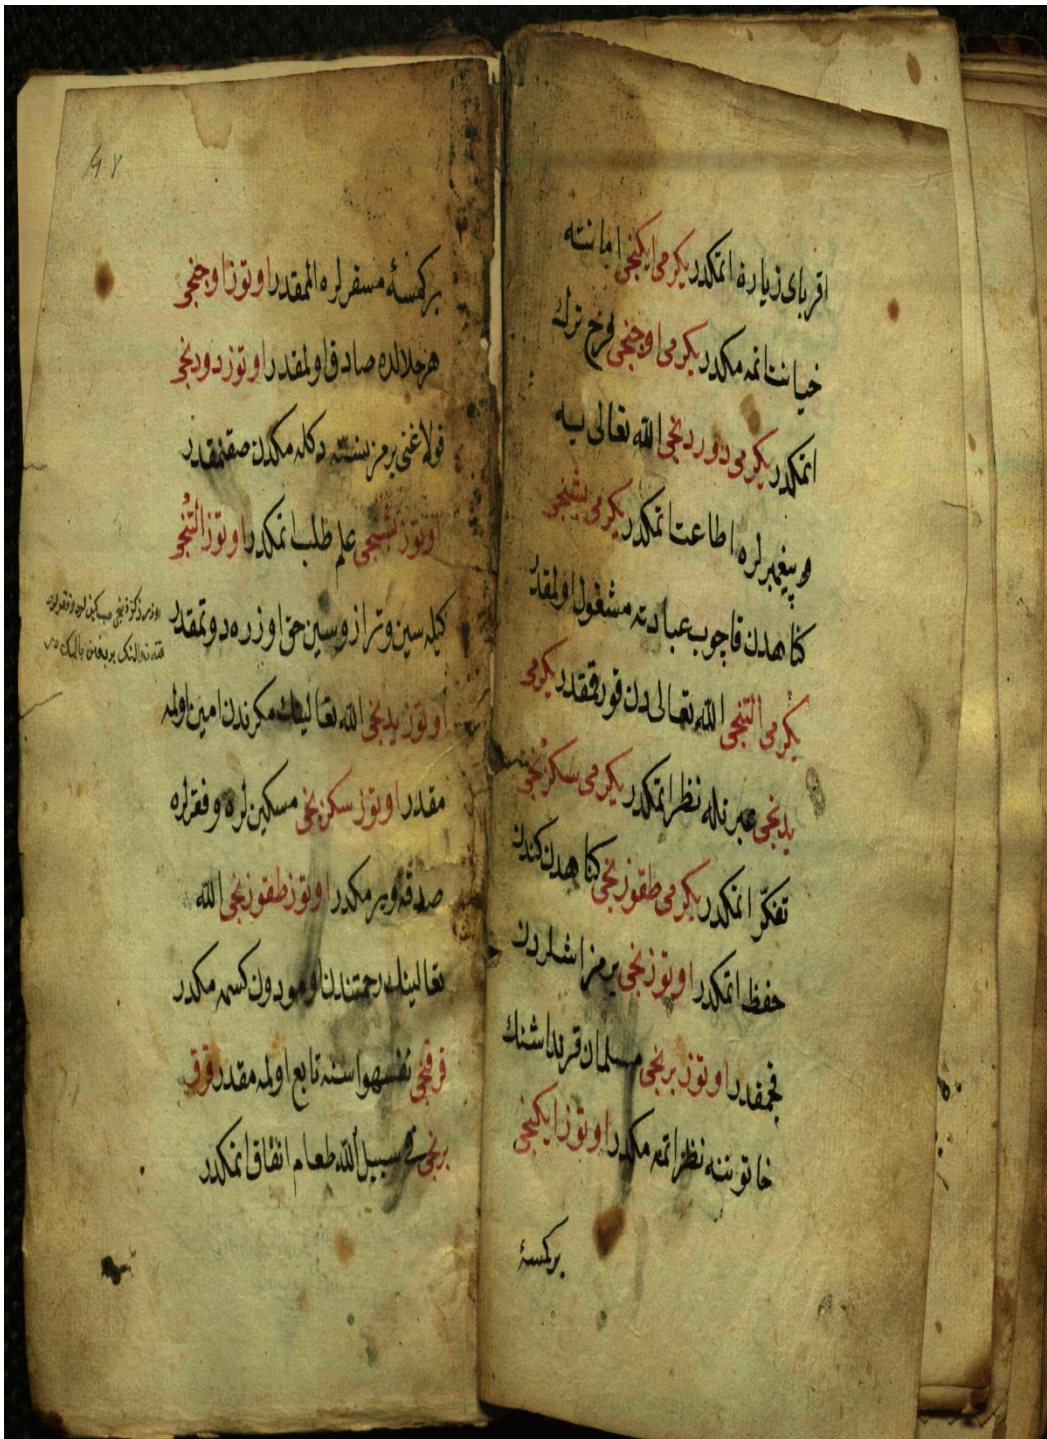 اقرباى زيارة اتمكدر يكرمى ايكنجى امانته
خيانت اتمه مكدر يكرمى اوچنجى فرخ ترك
اتمكدر يكرمى دوردنجى الله تعالى يه
و پيغمبرلره اطاعت اتمكدر يكرمى بشنجى
كناهدن قاچوب عبادته مشغول اولمقدر
يكرمى التنجى الله تعالى دن قورقمقدر يكرمى
يدنجى عبرتله نظر اتمكدر يكرمى سكزنجى
تفكّر اتمكدر يكرمى طقوزنجى كناهدن كندن
حفظ اتمكدر اوتوزنجى يرمز اشلردن
قچمقدر اوتوز برنجى مسلمان قرنداشنك
خاتوننه نظر اتمه مكدر اوتوز ايكنجى
بركمسهٔ
٤٧
بركمسهٔ مسقرلره المقدر اوتوز اوچنجى
هر حلالده صادق اولمقدر اوتوز دوردنجى
قولاغنى يرمز نسنه دكله مكدن صقنمقدر
اوتوز بشنجى علم طلب اتمكدر اوتوز التنجى
كيله سين و ترازوسين حق اوزره دوتمقدر
اوتوز يدنجى الله تعالينك مكرندن امين اولمه
مقدر اوتوز سكزنجى مسكين لره و فقرلره
صدقه ويرمكدر اوتوز طقوزنجى الله
تعالينك رحمتندن اومودون كسمه مكدر
قرقنجى نفس هواسنه تابع اولمه مقدر قرق
برنجى فى سبيل الله طعام انفاق اتمكدر